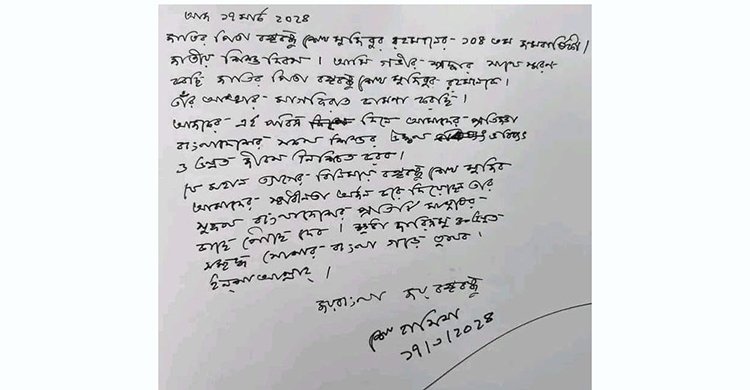 আজ ১৭ মার্চ ২০২৪
জাতির পিতা বঙ্গবন্ধু শেখ মুজিবুর রহমানের ১০৪ তম জন্মবার্ষিকী।
জাতীয় শিশু দিবস। আমি গভীর শ্রদ্ধার সাথে স্মরণ
করছি জাতির পিতা বঙ্গবন্ধু শেখ মুজিবুর রহমানকে।
তাঁর আত্মার মাগফিরাত কামনা করছি।
আজকের এই পবিত্র দিনে আমাদের প্রতিজ্ঞা
বাংলাদেশের সকল শিশুর উজ্জ্বল ভবিষ্যৎ
ও উন্নত জীবন নিশ্চিত করব।
যে মহান ত্যাগের বিনিময়ে বঙ্গবন্ধু শেখ মুজিব
আমাদের স্বাধীনতা অর্জন করে দিয়েছেন তার
সুফল বাংলাদেশের প্রতিটি মানুষের
কাছে পৌঁছে দেব। ক্ষুধা দারিদ্র্য মুক্ত উন্নত
সমৃদ্ধ সোনার বাংলা গড়ে তুলব।
ইনশাআল্লাহ্।
জয় বাংলা জয় বঙ্গবন্ধু
শেখ হাসিনা
১৭/৩/২০২৪